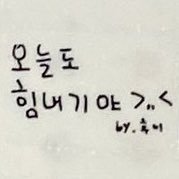 오늘도
힘내기야 >,,<
by.